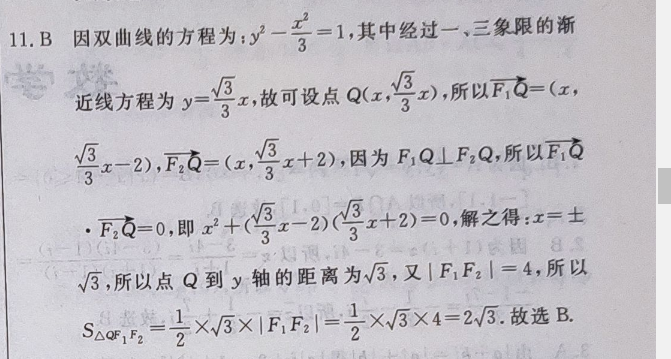 11. B 因双曲线的方程为:y² − x²/3 = 1,其中经过一、三象限的渐
近线方程为 y=√3/3 x,故可设点 Q(x, √3/3 x),所以F₁Q→=(x,
√3/3 x−2),F₂Q→=(x, √3/3 x+2),因为 F₁Q⊥F₂Q,所以F₁Q→
·F₂Q→=0,即 x²+(√3/3 x−2)(√3/3 x+2)=0,解之得:x=±
√3,所以点 Q 到 y 轴的距离为√3,又|F₁F₂|=4,所以
S△QF₁F₂=1/2×√3×|F₁F₂|=1/2×√3×4=2√3.故选 B.